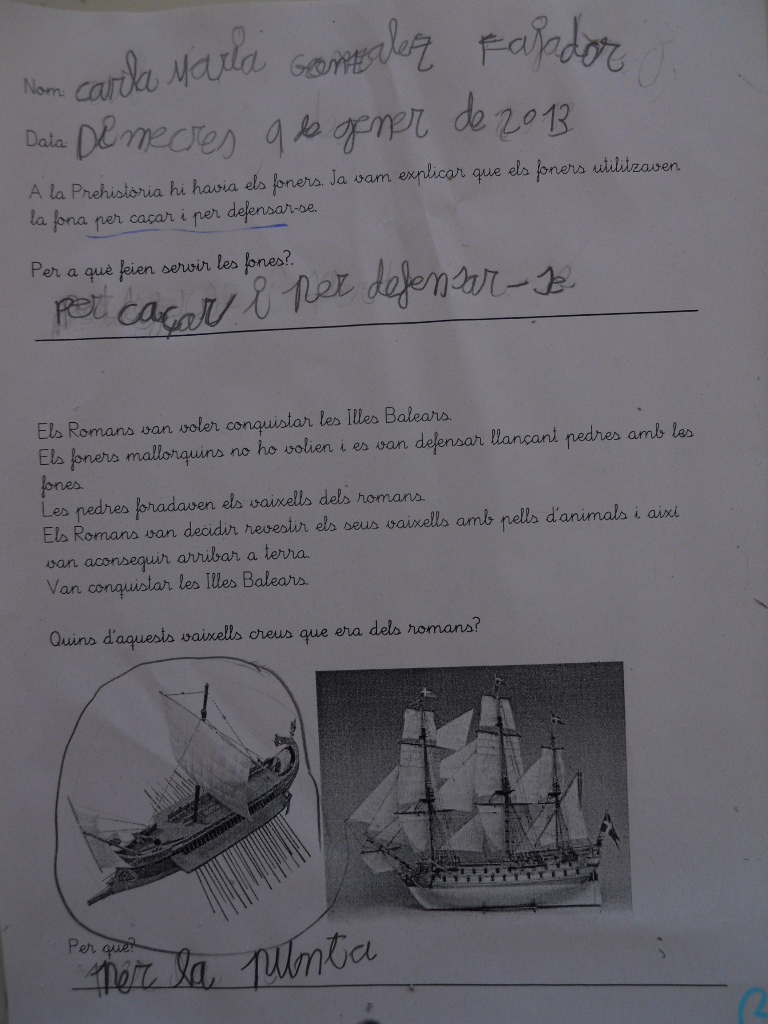 Nom: Carla Maria Gonzalez Fajador
Data: Dimecres 9 de gener de 2013
A la Prehistòria hi havia els foners. Ja vam explicar que els foners utilitzaven
la fona per caçar i per defensar-se.
Per a què feien servir les fones?.
Per caçar i per defensar-se
Els Romans van voler conquistar les Illes Balears.
Els foners mallorquins no ho volien i es van defensar llançant pedres amb les
fones.
Les pedres foradaven els vaixells dels romans.
Els Romans van decidir revestir els seus vaixells amb pells d'animals i així
van aconseguir arribar a terra.
Van conquistar les Illes Balears.
Quins d'aquests vaixells creus que era dels romans?
Per que?
Per la punta